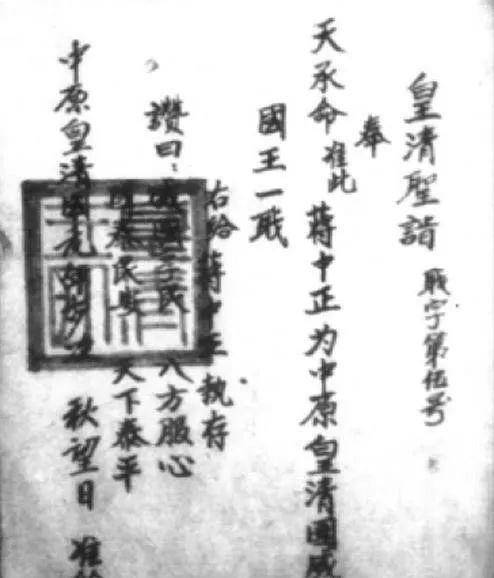 皇清聖詔 戝字第伍号
奉
天承命准此 蔣中正为中原皇清國威
國王一戝
右給蔣中正执存
讚曰: 民 八方服心
國泰民安 天下泰平
中原皇清國元 秋望日 准